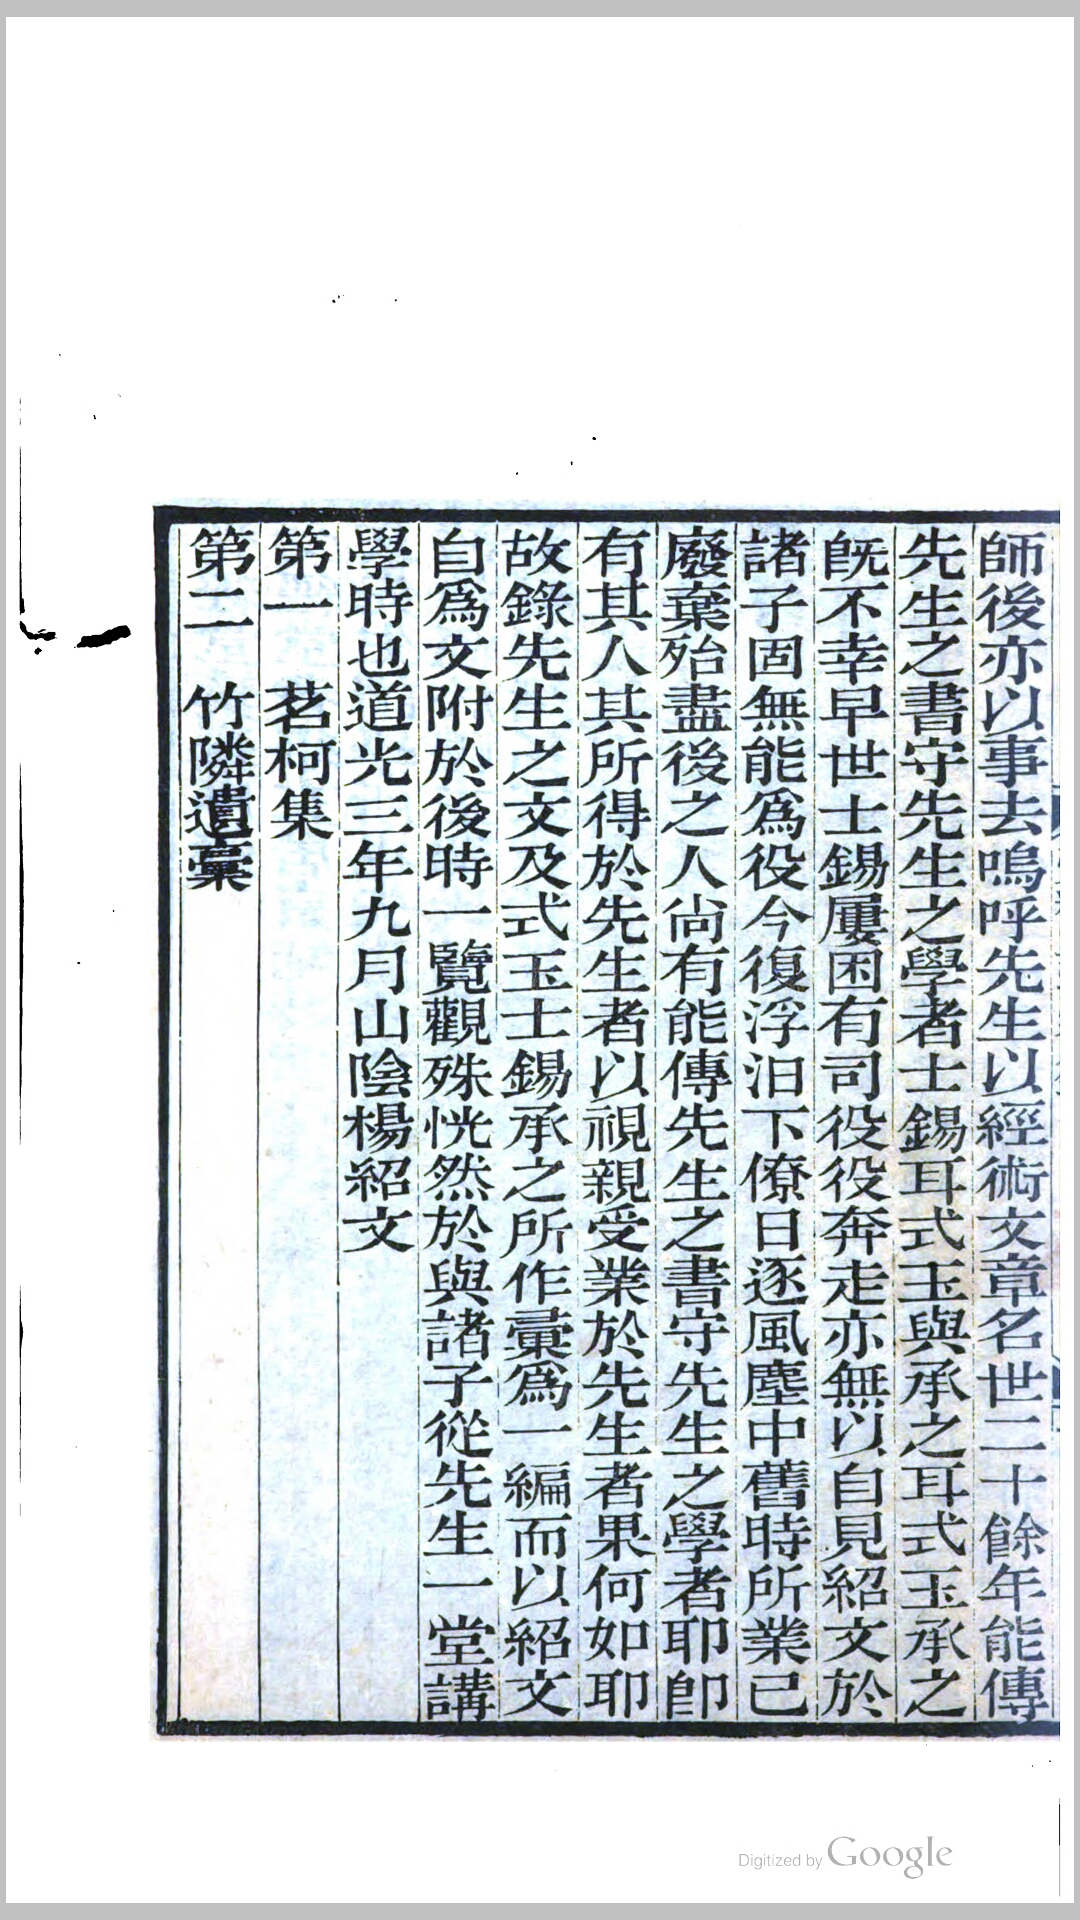 師後亦以事去嗚呼先生以經術文章名世二十餘年能傳
先生之書守先生之學者士錫耳式玉與承之耳式玉承之
旣不幸早世士錫屢困有司役役奔走亦無以自見紹文於
諸子固無能爲役今復浮汨下僚日逐風塵中舊時所業已
廢棄殆盡後之人尙有能傳先生之書守先生之學者耶卽
有其人其所得於先生者以視親受業於先生者果何如耶
故錄先生之文及式玉士錫承之所作彙爲一編而以紹文
自爲文附於後時一覽觀殊恍然於與諸子從先生一堂講
學時也道光三年九月山陰楊紹文
第一 茗柯集
第二 竹隣遺稾
Digitized by Google